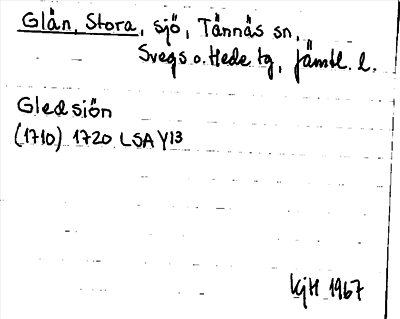 Glän, Stora, sjö, Tännäs sn.
Svegs o. Hede tg, Jämtl. l.
Gledsiön
(1710) 1720 LSA Y13
KjH 1967